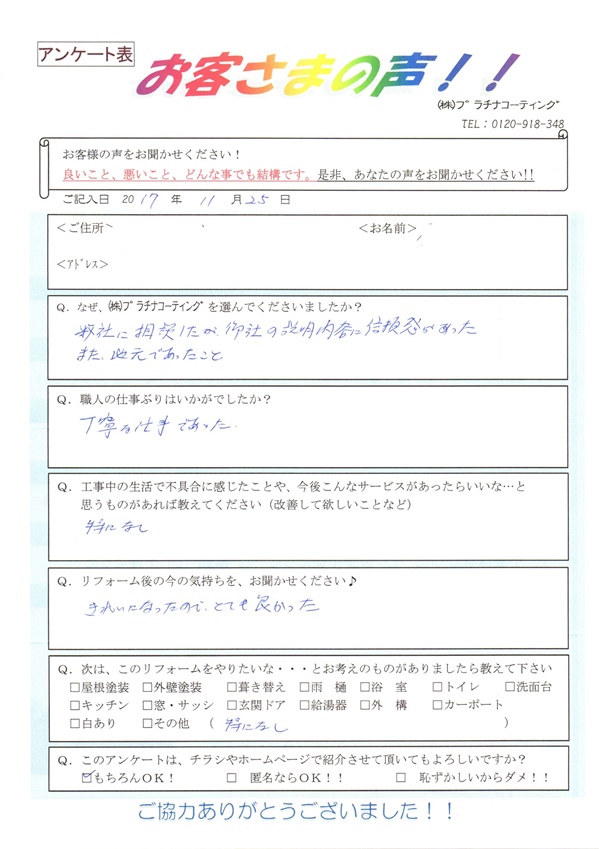 アンケート表
お客さまの声！！
㈱プラチナコーティング
TEL：0120-918-348
お客様の声をお聞かせください！
良いこと、悪いこと、どんな事でも結構です。是非、あなたの声をお聞かせください!!
ご記入日 2017 年 11 月 25 日
＜ご住所＞ ＜お名前＞
＜アドレス＞
Q．なぜ、㈱プラチナコーティングを選んでくださいましたか？
数社に相談したが、御社の説明内容に信頼感があった
また、地元であったこと
Q．職人の仕事ぶりはいかがでしたか？
丁寧な仕事であった.
Q．工事中の生活で不具合に感じたことや、今後こんなサービスがあったらいいな…と
思うものがあれば教えてください（改善して欲しいことなど）
特になし
Q．リフォーム後の今の気持ちを、お聞かせください♪
きれいになったので、とても良かった
Q．次は、このリフォームをやりたいな・・・とお考えのものがありましたら教えて下さい
□屋根塗装 □外壁塗装 □葺き替え □雨 樋 □浴 室 □トイレ □洗面台
□キッチン □窓・サッシ □玄関ドア □給湯器 □外 構 □カーポート
□白あり □その他 （ 特になし ）
Q．このアンケートは、チラシやホームページで紹介させて頂いてもよろしいですか？
☑もちろんOK！ □ 匿名ならOK！！ □ 恥ずかしいからダメ！！
ご協力ありがとうございました！！